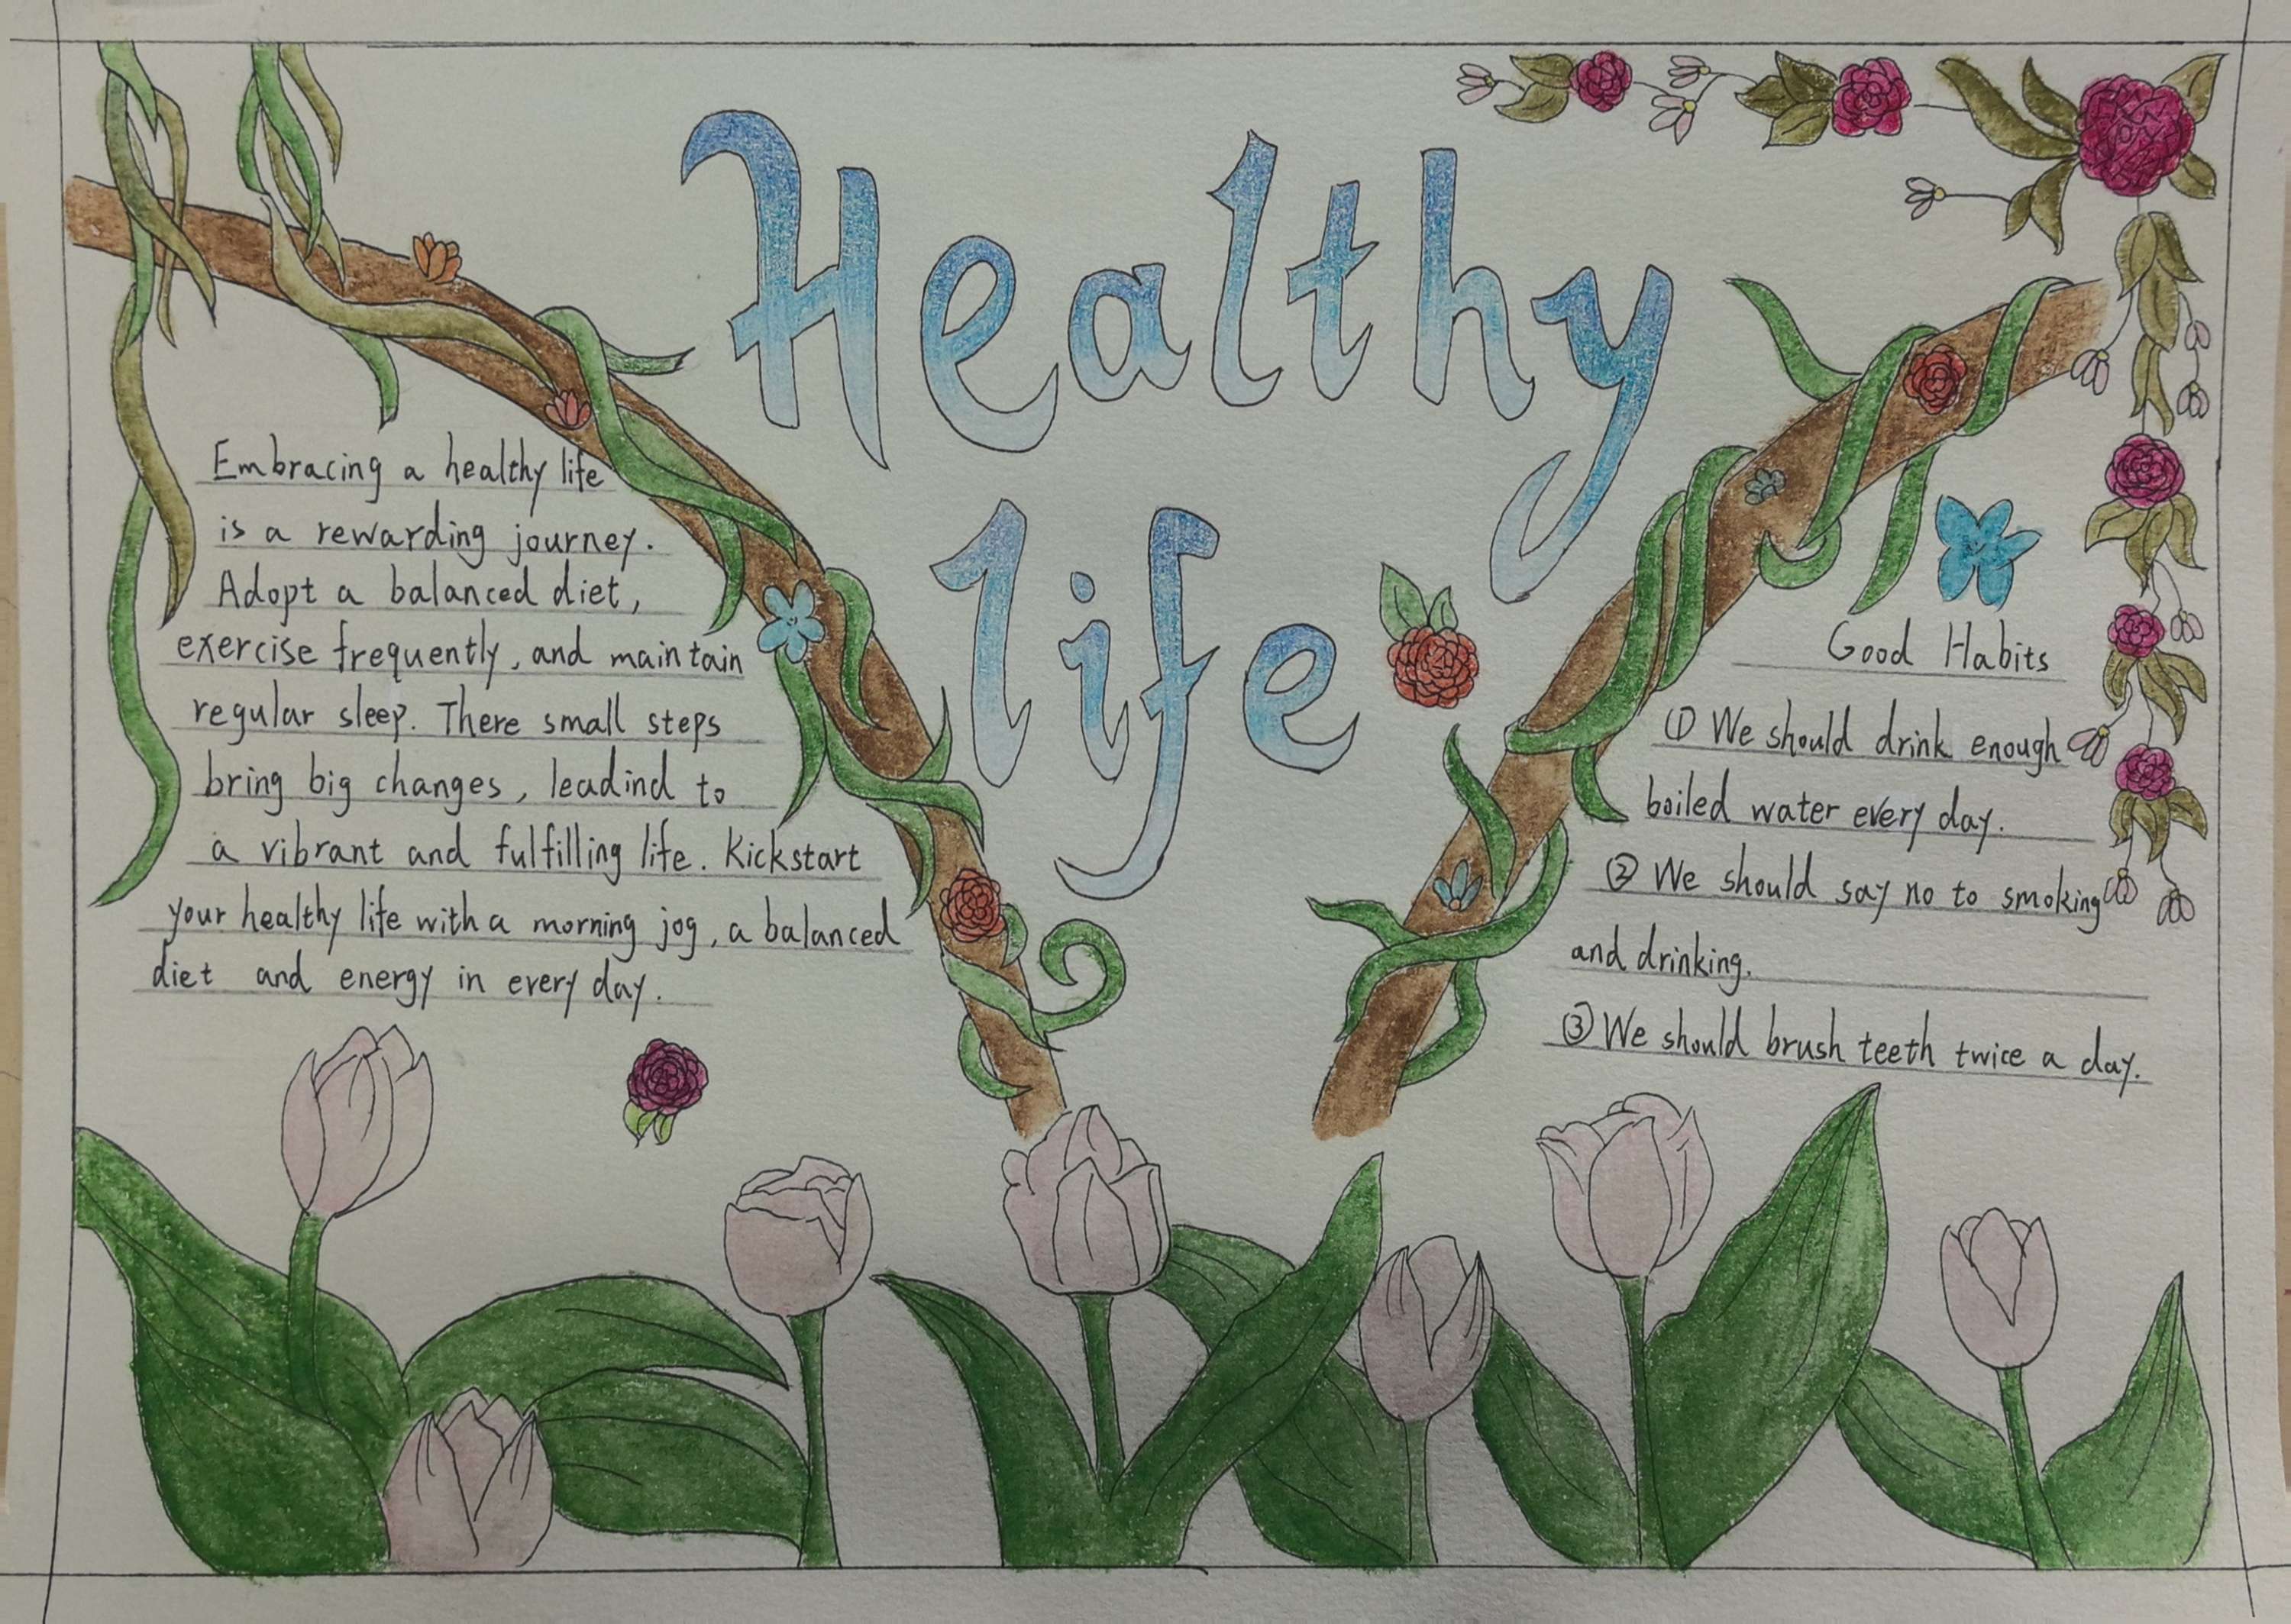 Healthy
life
Embracing a healthy life
is a rewarding journey.
Adopt a balanced diet,
exercise frequently, and maintain
regular sleep. There small steps
bring big changes, leadind to
a vibrant and fulfilling life. Kickstart
your healthy life with a morning jog, a balanced
diet and energy in every day.
Good Habits
① We should drink enough
boiled water every day.
② We should say no to smoking
and drinking.
③ We should brush teeth twice a day.